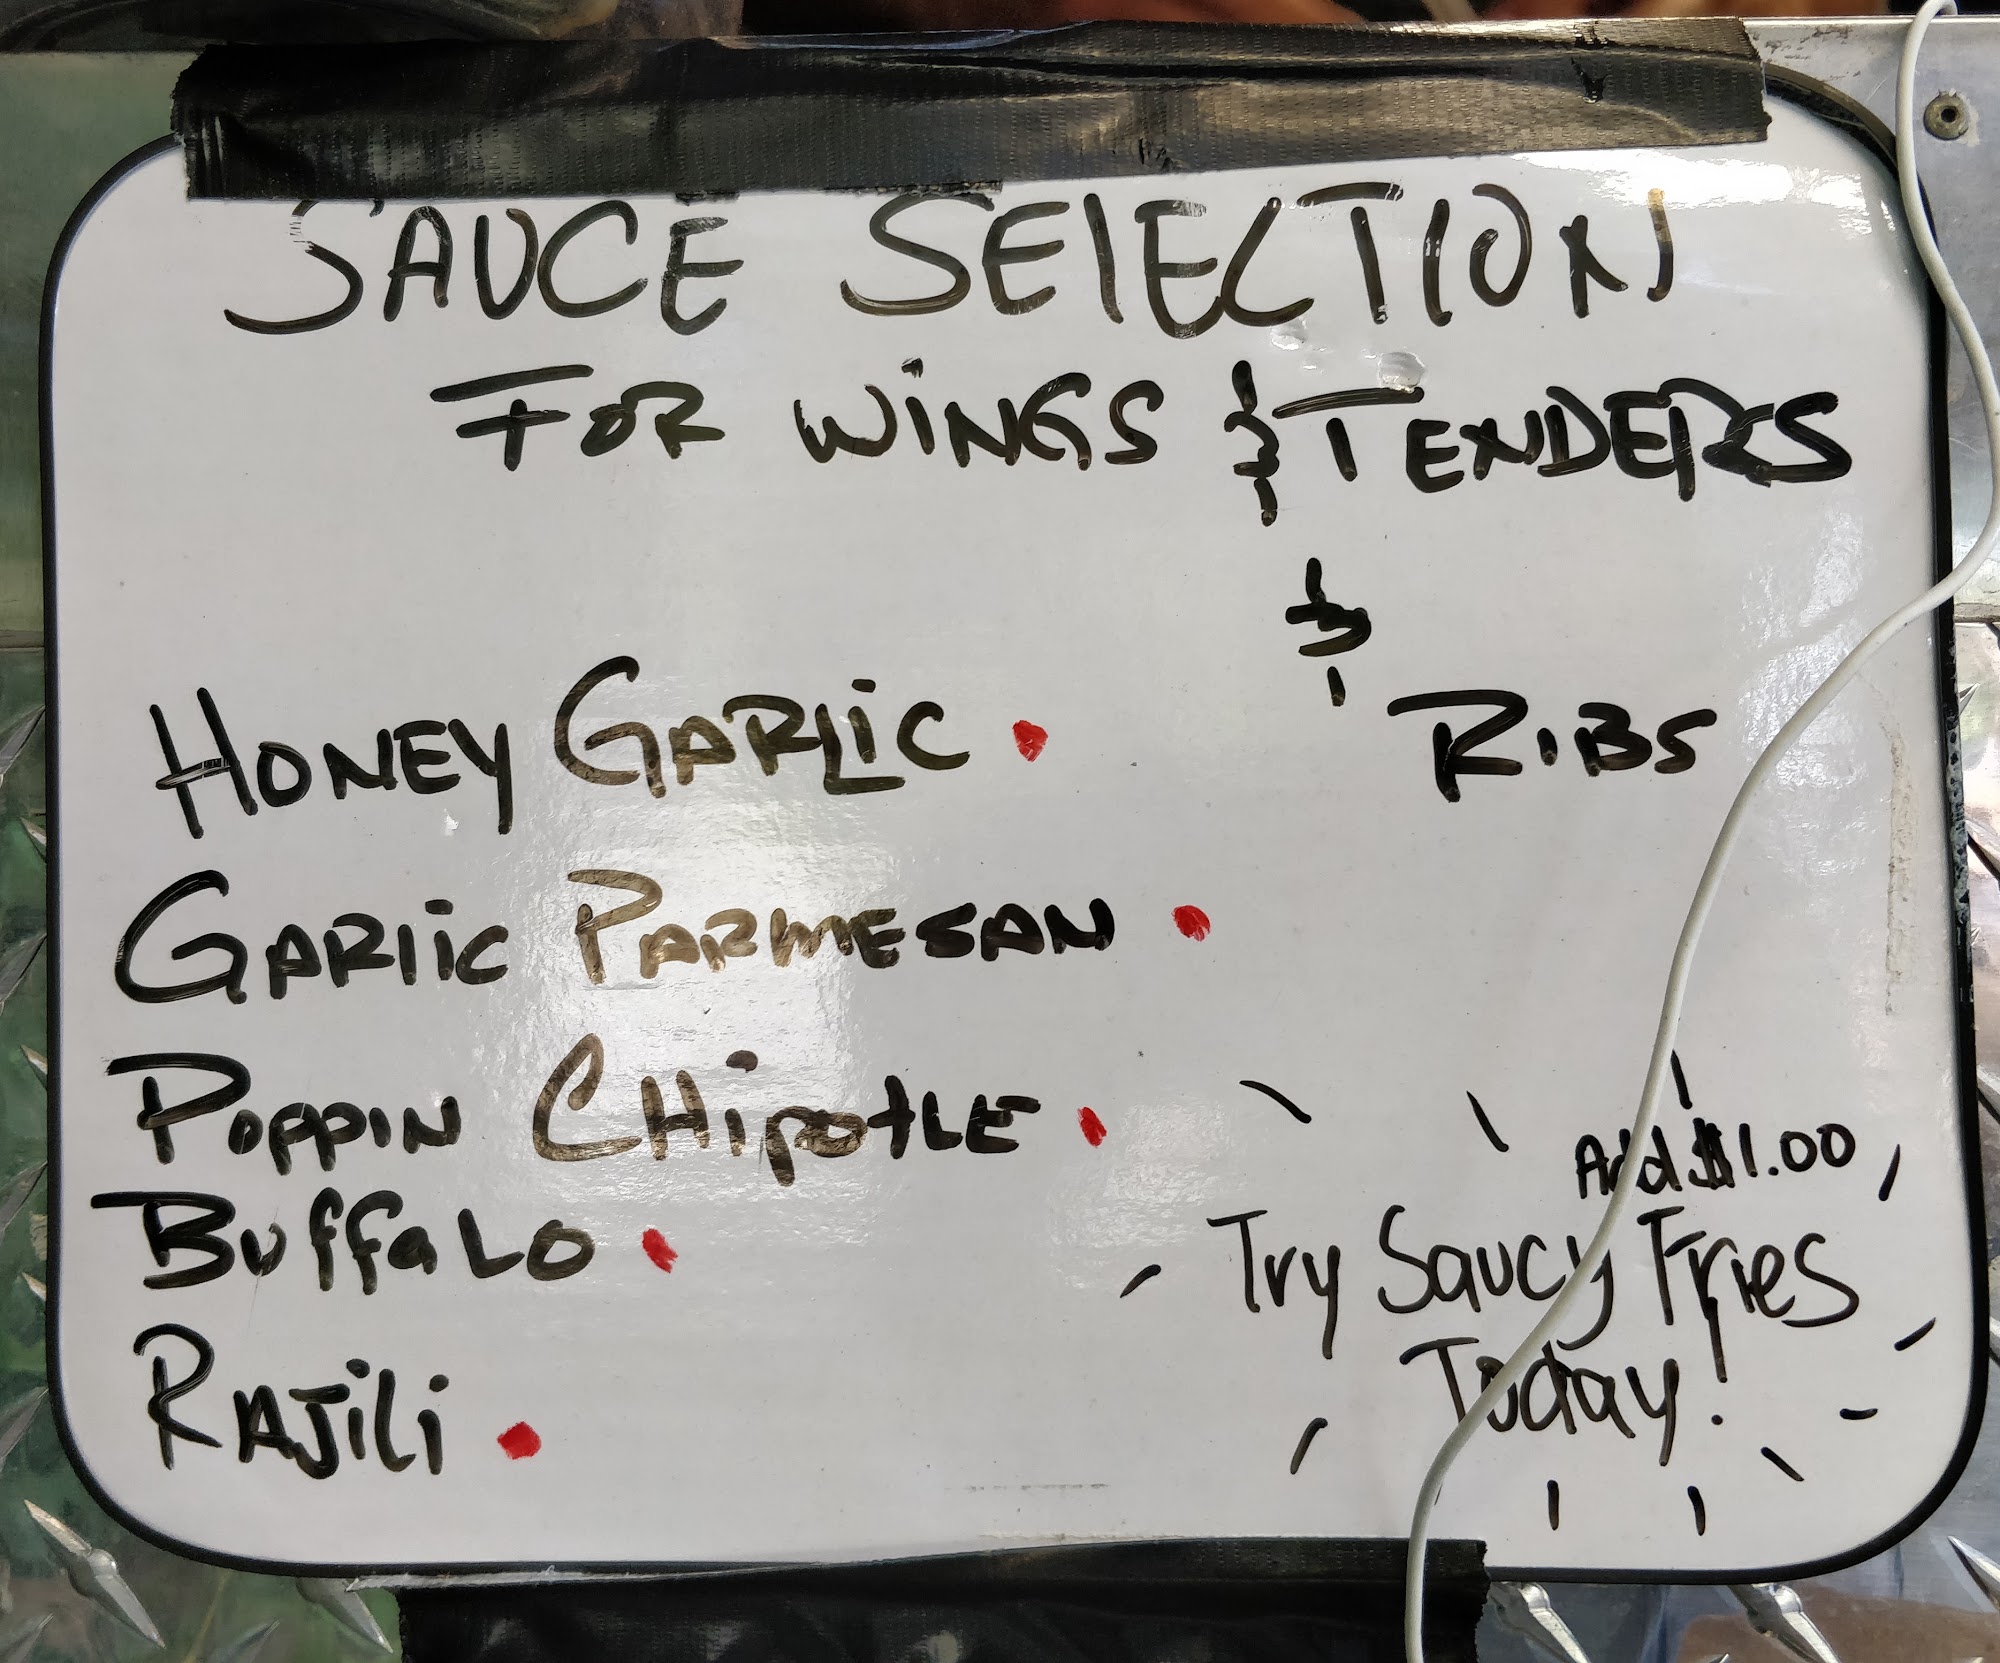 SAUCE SElECTION
FOR WiNGS & TENDERS
&
RiBS
HONEY GARLiC
GARlic PARMESAN
POPPIN CHipotLE
BuffaLO
RAJili
Add $1.00
Try Saucy Fries
Today!